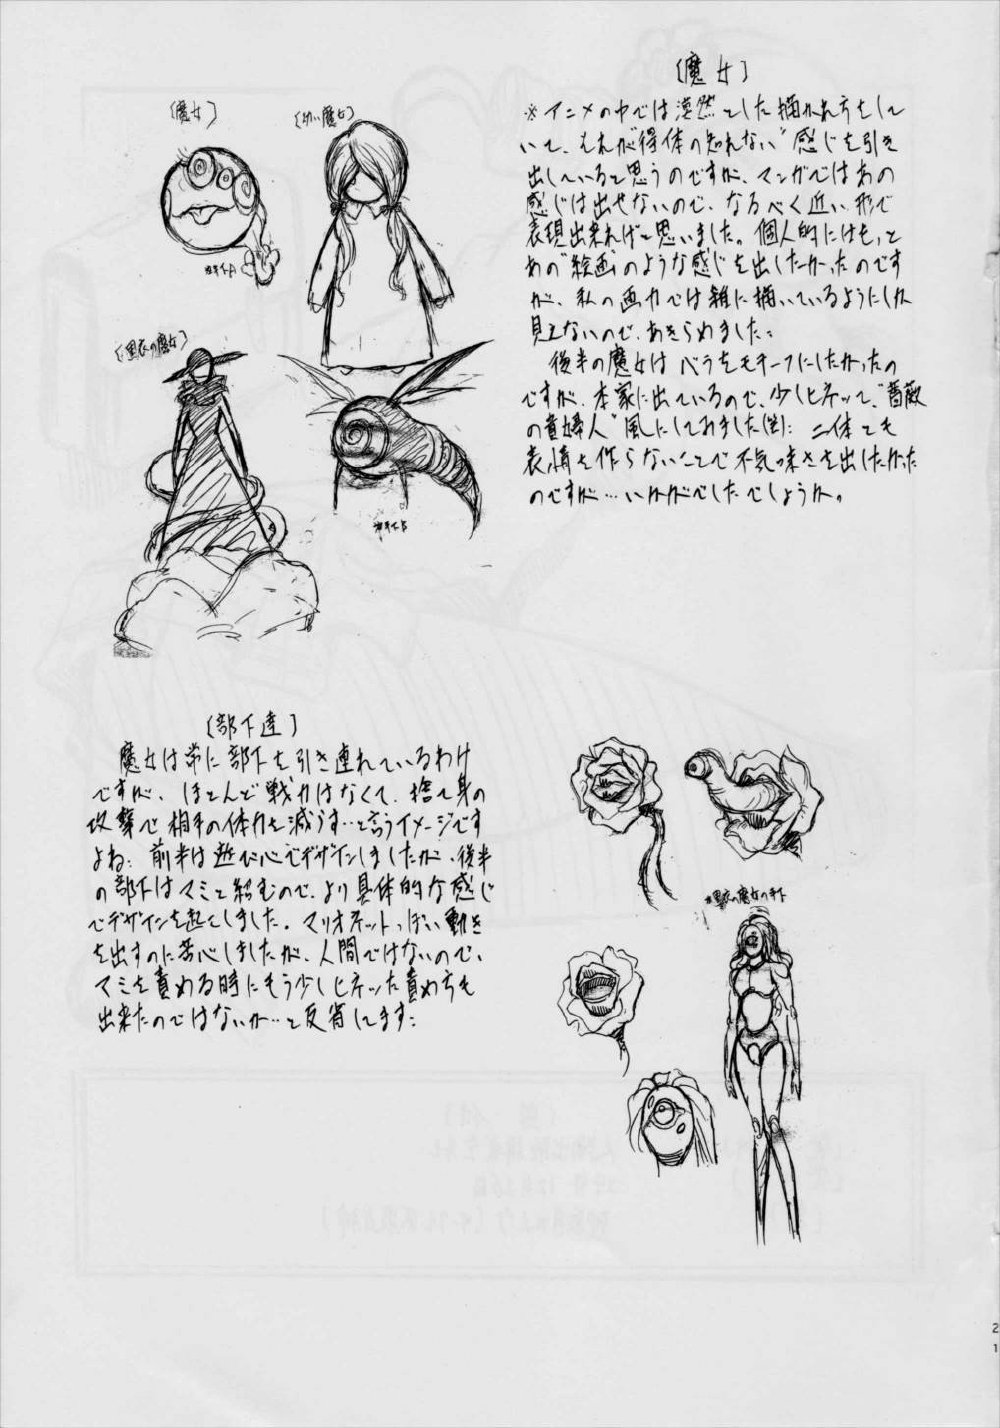 〔魔女〕
※アニメの中では漠然とした描かれ方をして
いて、それが得体の知れない"感じを引き
出していると思うのですが、マンガではあの
感じは出せないので、なるべく近い形で
表現出来ればと思いました。個人的にはもっと
あの"絵画"のような感じを出したかったのです
が、私の画力では雑に描いているようにしか
見えないので、あきらめました:
後半の魔女はベラをモチーフにしたかったの
ですが、本家に出ているので、少しヒネッて、"薔薇
の貴婦人"風にしてみました(笑): 二体とも
表情を作らないことで不気味さを出したかった
のですが…いかがでしたでしょうか。
〔魔女〕
〔幼い魔女〕
〔黒衣の魔女〕
〔部下達〕
魔女は常に部下を引き連れているわけ
ですが、ほとんど戦力はなくて、捨て身の
攻撃で相手の体力を減らす…と言うイメージです
よね: 前半は遊び心でデザインしましたが、後半
の部下はマミと絡むので、より具体的な感じ
でデザインを起こしました。マリオネットっぽい動き
を出すのに苦心しましたが、人間ではないので、
マミを責める時にもう少しヒネッた責め方も
出来たのではないか…と反省してます:
黒衣の魔女の手下
21